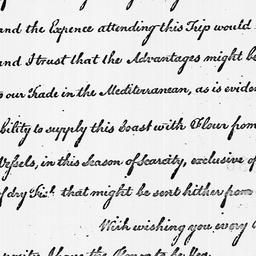 and the Expence attending this Trip would
and I trust that the Advantages might be
our Trade in the Mediterranean, as is evident
bility to supply this Coast with Flour from
Vessels, in this Season of Scarcity, exclusive of
of dry Fish that might be sent hither from
With wishing you every